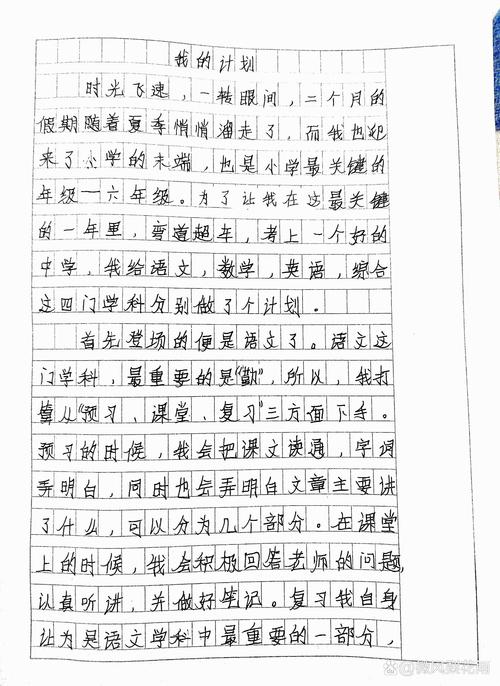 我的计划
时光飞速，一转眼间，二个月的
假期随着夏季悄悄溜走了，而我也迎
来了小学的末端，也是小学最关键的
年级一六年级。为了让我在这最关键
的一年里，弯道超车，考上一个好的
中学，我给语文，数学，英语，综合
这四门学科分别做了个计划。
首先登场的便是语文了。语文这
门学科，最重要的是“勤”，所以，我打
算从“预习、课堂、复习”三方面下手。
预习的时候，我会把课文读通，字词
弄明白，同时也会弄明白文章主要讲
了什么，可以分为几个部分。在课堂
上的时候，我会积极回答老师的问题，
认真听讲，并做好笔记。复习我自身
认为是语文学科中最重要的一部分，